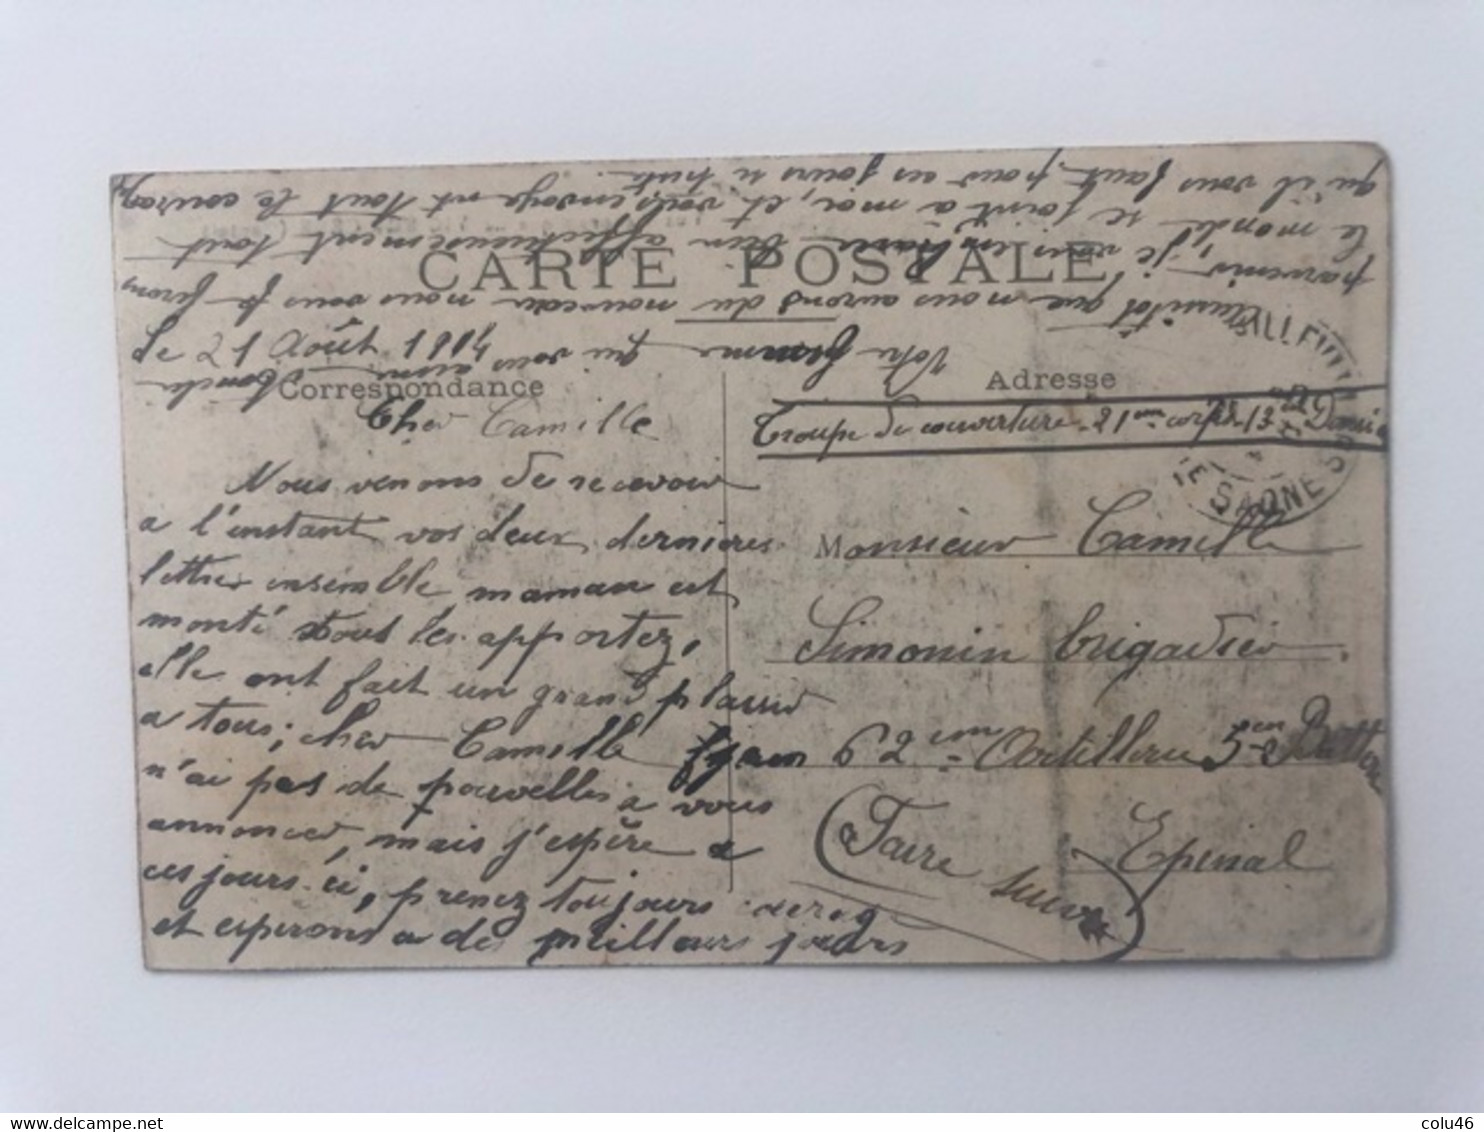 CARTE POSTALE
Correspondance
Adresse
Le 21 Août 1914
Cher Camille
Nous venons de recevoir
a l'instant vos deux dernières
lettres ensemble maman est
monté tout les apportez,
elle ont fait un grand plaisir
a tous; cher Camille
n'ai pas de nouvelles a vous
annoncer, mais j'espère a
ces jours-ci, prenez toujours courage
et esperons a des meilleurs jours
aussitot que nous aurons du nouveau nous vous le ferons
parvenir, je vous embrasse bien affectueusement tout
le monde se joint a moi, et vous envoyant tout le courage
qu'il vous faut pour ces jours si triste.
Votre femme qui vous aime
Troupe de couverture 21eme corps 13
Monsieur Camille
Simonin brigadier
62eme Artillerie 5eme Batterie
Epinal
(a Faire suivre)
SAONE
colu46